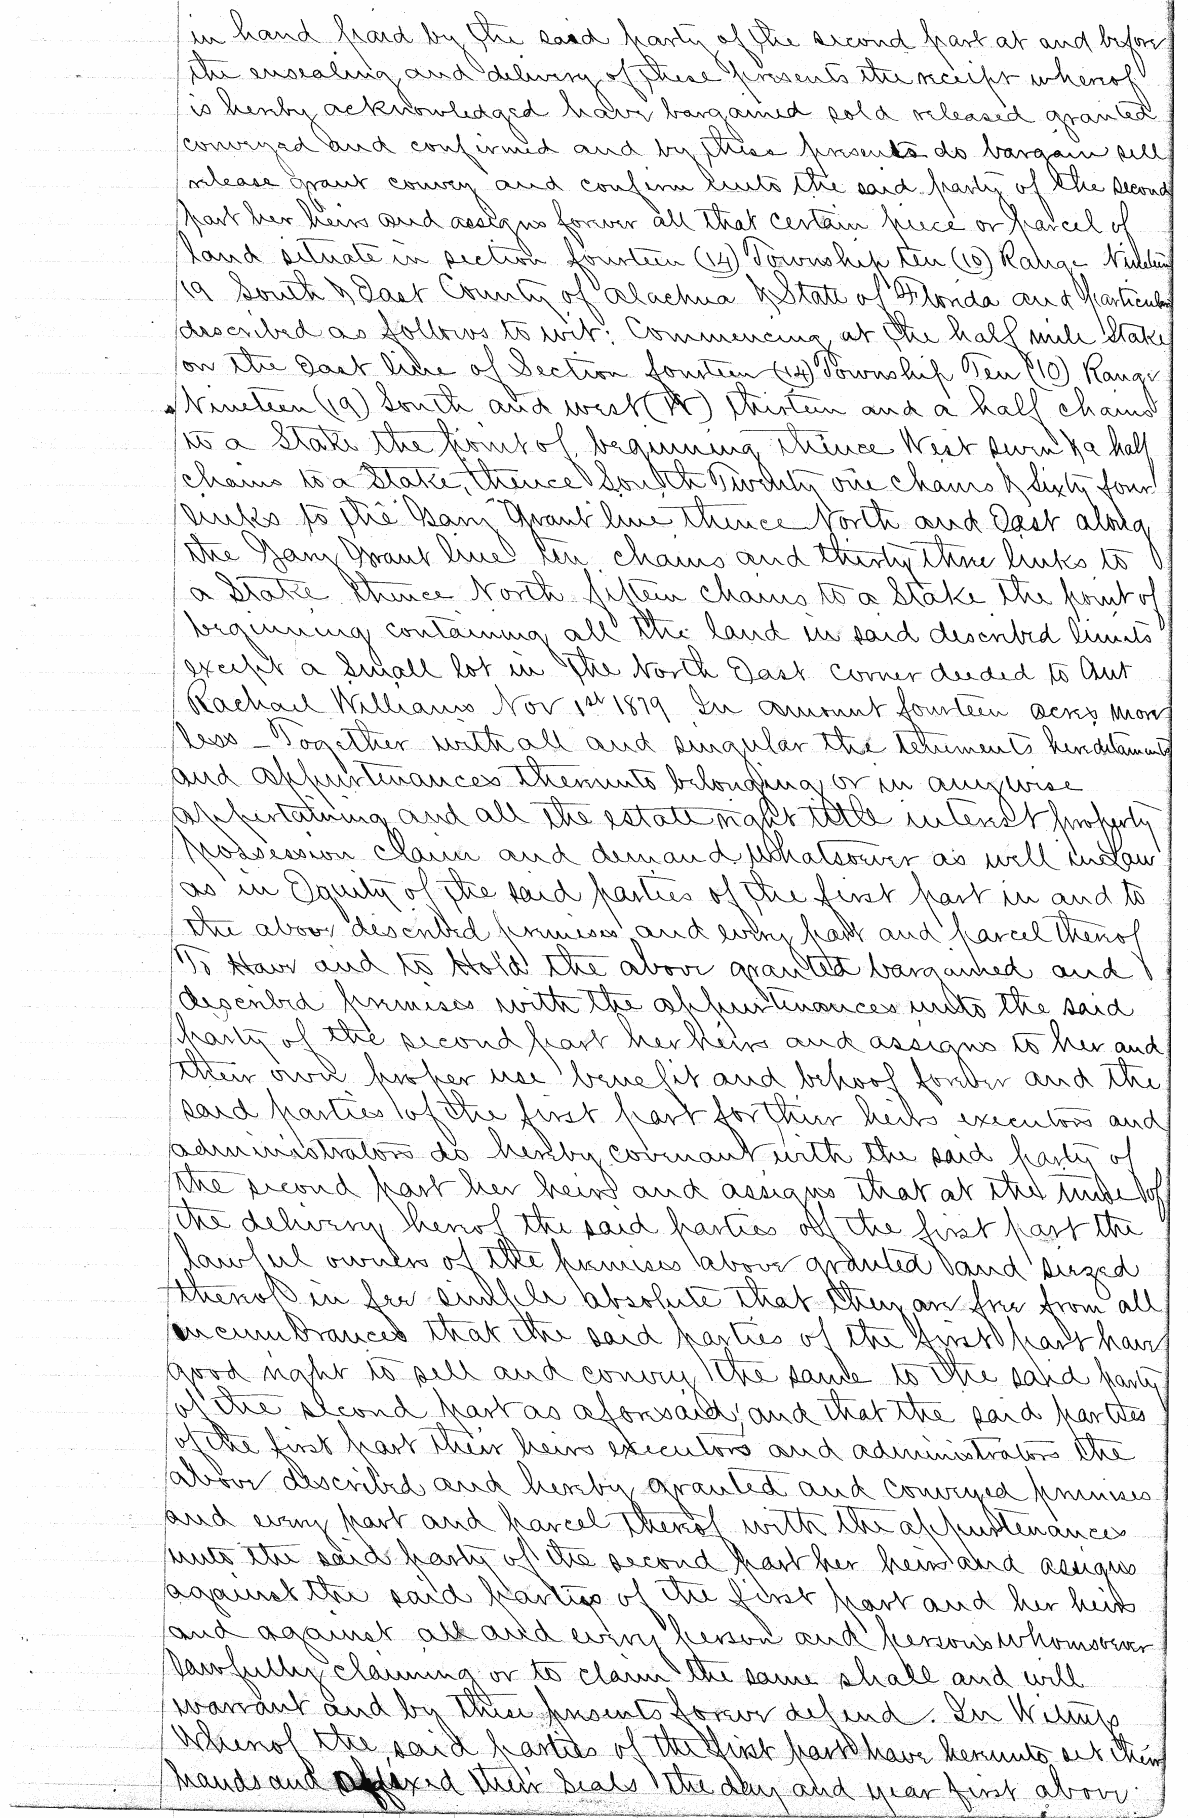 in hand paid by the said party of the second part at and before
the ensealing and delivery of these presents the receipt whereof
is hereby acknowledged have bargained sold released granted
conveyed and confirmed and by these presents do bargain sell
release grant convey and confirm unto the said party of the second
part her heirs and assigns forever all that certain piece or parcel of
land situate in section fourteen (14) Township ten (10) Range Nineteen
19 South & East County of Alachua & State of Florida and particular
described as follows to wit: Commencing at the half mile Stake
on the East line of Section fourteen (14) Township Ten (10) Range
Nineteen (19) South and west thirteen and a half chains
to a Stake the point of beginning thence West seven & a half
chains to a Stake, thence South Twenty one chains & Sixty four
links to the Gary Grant line thence North and East along
the Gary Grant line ten chains and thirty three links to
a Stake thence North fifteen chains to a Stake the point of
beginning containing all the land in said described limits
except a small lot in the North East corner deeded to Aut
Rachael Williams Nov 1st 1879 In amount fourteen acres more
less – Together with all and singular the teniments hereditaments
and appurtenances thereunto belonging or in anywise
appertaining and all the estate right title interest property
possession claim and demand Whatsoever as well in Law
as in Equity of the said parties of the first part in and to
the above described premises and every part and parcel thereof
To Have and to Hold the above granted bargained and
described premises with the appurtenances unto the said
party of the second part her heirs and assigns to her and
their own proper use benefit and behoof forever and the
said parties of the first part for their heirs executors and
administrators do hereby covenant with the said party of
the second part her heirs and assigns that at the time of
the delivery hereof the said parties of the first part the
lawful owners of the premises above granted and siezed
thereof in fee simple absolute that they are free from all
incumbrances that the said parties of the first part have
good right to sell and convey the same to the said party
of the second part as aforesaid, and that the said parties
of the first part their heirs executors and administrators the
above described and hereby granted and conveyed premises
and every part and parcel thereof with the appurtenances
unto the said party of the second part her heirs and assigns
against the said parties of the first part and her heirs
and against all and every person and persons whomsoever
lawfully claiming or to claim the same shall and will
warrant and by these presents forever defend. In Witness
Whereof the said parties of the first part have hereunto set their
hands and affixed their Seals the day and year first above